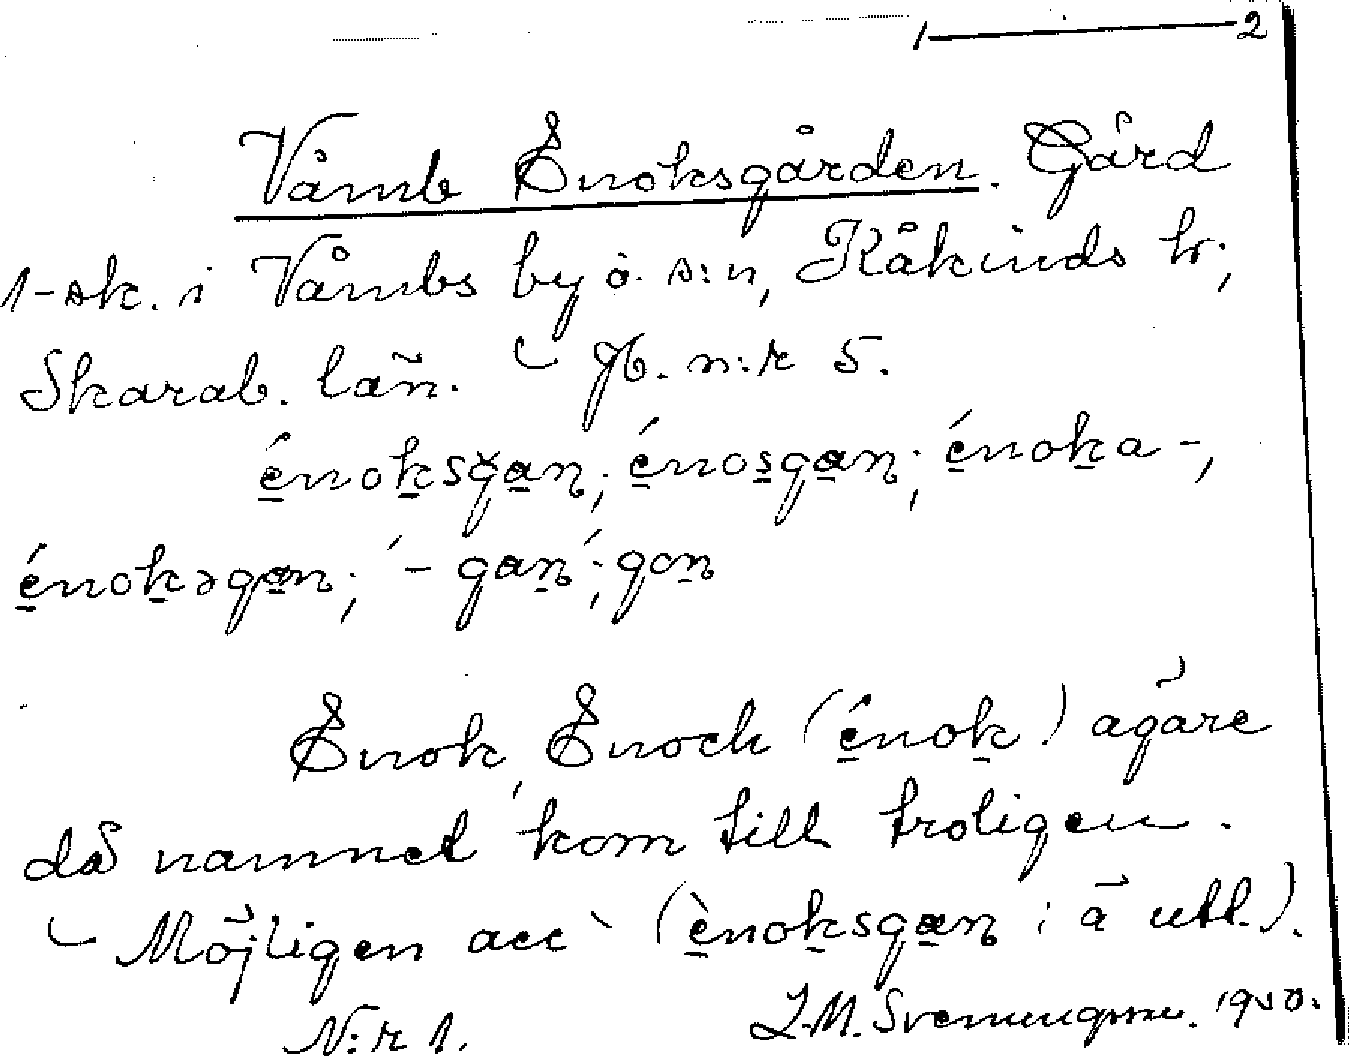 1 — 2
Våmb Enoksgården. Gård
1-sk. i Våmbs by o. s:n, Kåkinds hr;
Skarab. län. jb. n:r 5.
énoksgan; énosgan; énoka-,
énokəgan; ́- gan ́; gan
Enok, Enoch (énok) ägare
då namnet kom till troligen.
Möjligen acc ` (ènoksgan i ä utt.).
N:r 1. J.M. Svenungsson. 1950.